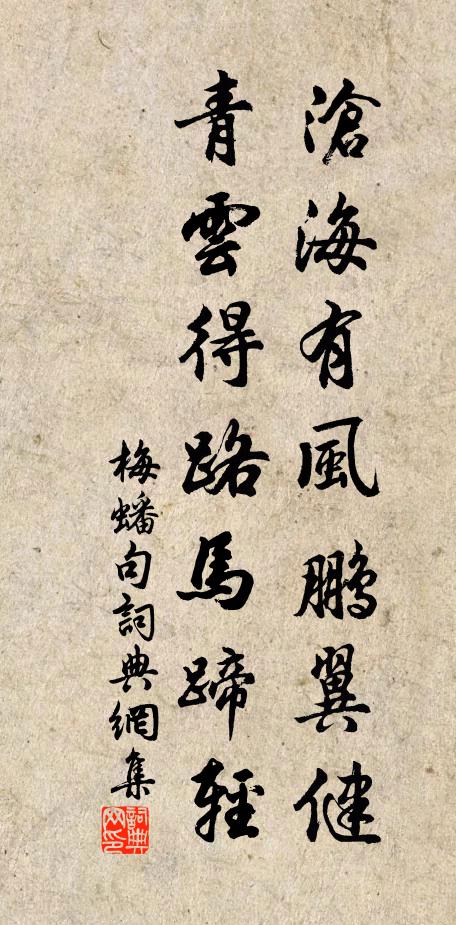 滄海有風鵬翼健
青雲得路馬蹄輕
梅蟠句詞典網集
詞典网印